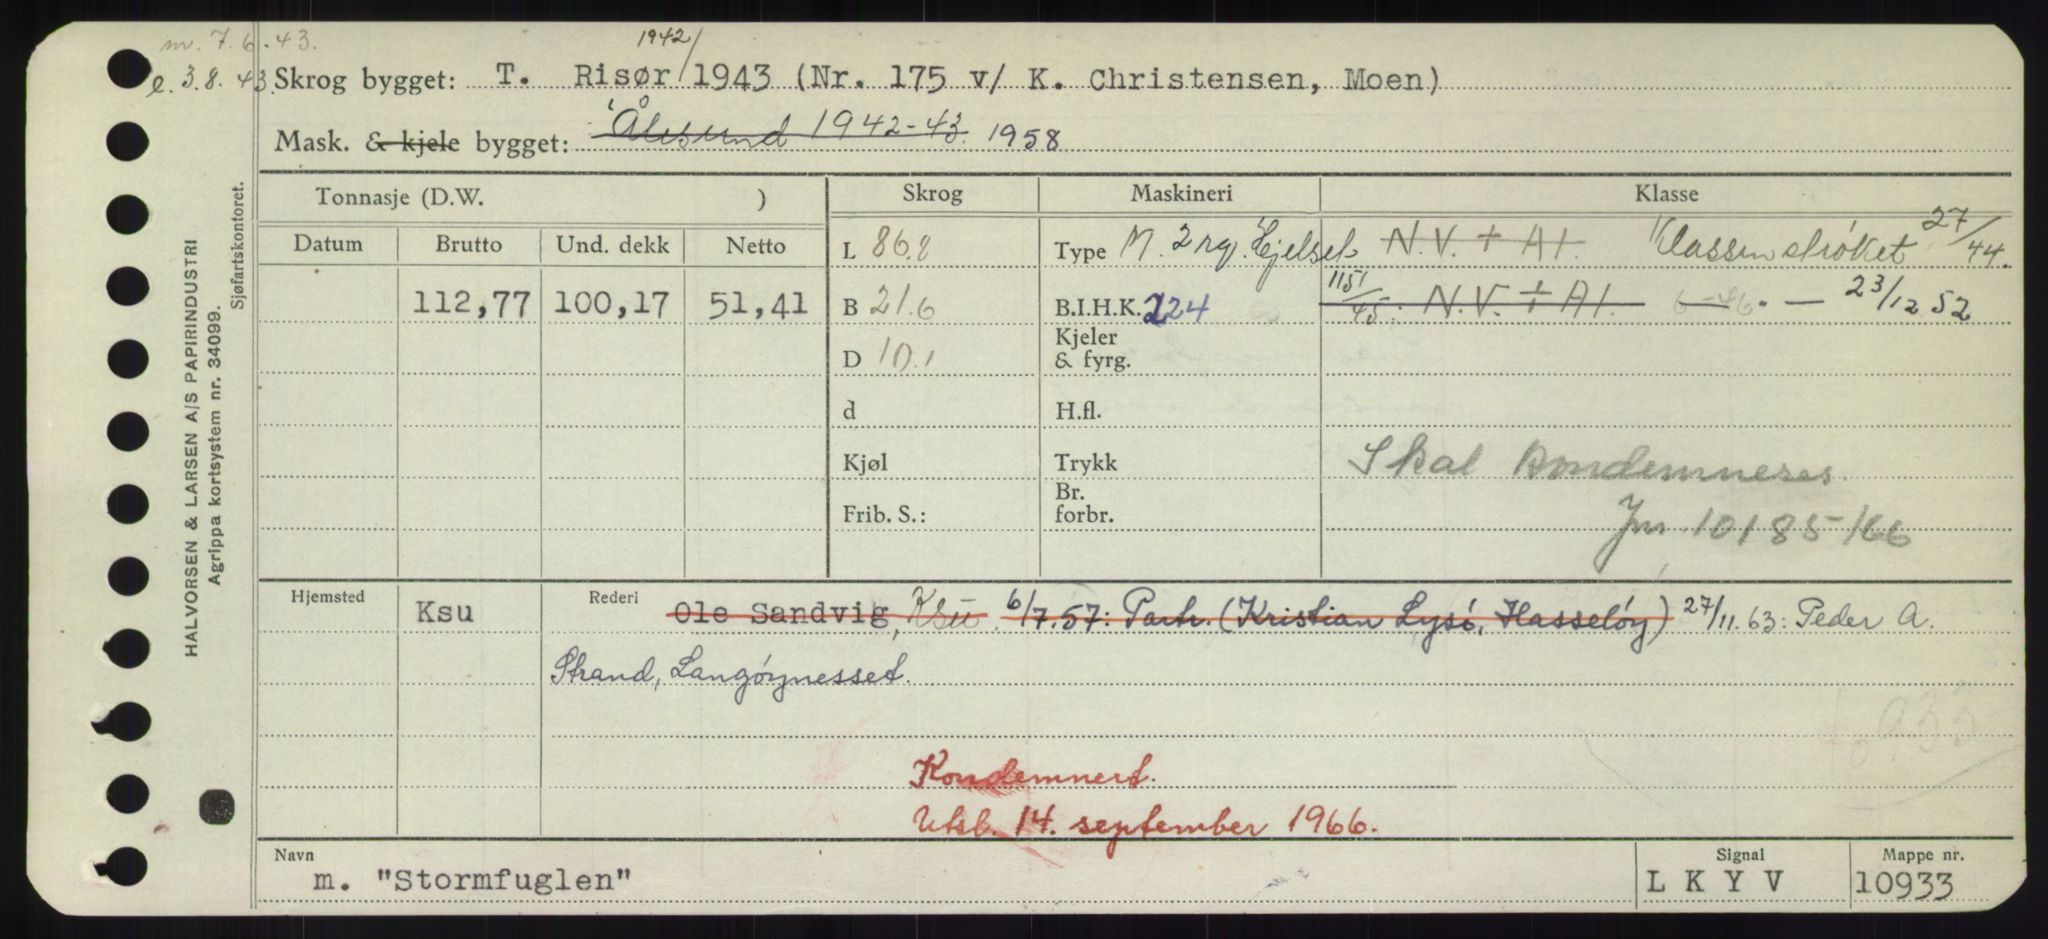 m. 7.6.43.
e. 3.8.43.
1942/
Skrog bygget: T. Risør 1943 (Nr. 175 v/ K. Christensen, Moen)
Mask. & kjele bygget: Ålesund 1942-43. 1958
HALVORSEN & LARSEN A/S PAPIRINDUSTRI
Agrippa kortsystem nr. 34099.
Sjøfartskontoret.
Tonnasje (D.W. ) Skrog Maskineri Klasse
Datum Brutto Und. dekk Netto L 86.8 Type M. 2 rg. Hjelset N.V. + A1. Klassen strøket 27/44.
112,77 100,17 51,41 B 21.6 B.I.H.K. 224 1151/45: N.V. + A1. 6-46. — 23/12 52
D 10.1 Kjeler & fyrg.
d H.fl.
Kjøl Trykk Skal kondemneres.
Frib. S.: Br. forbr. Jnr. 10185/66
Hjemsted Ksu Rederi Ole Sandvig, Ksu. 6/7.57: Partr. (Kristian Lysö, Hasselöy) 27/11.63: Peder A.
Strand, Langøynesset.
10933
Kondemnert.
Utsl. 14. september 1966.
Navn Signal Mappe nr.
m. "Stormfuglen" L K Y V 10933